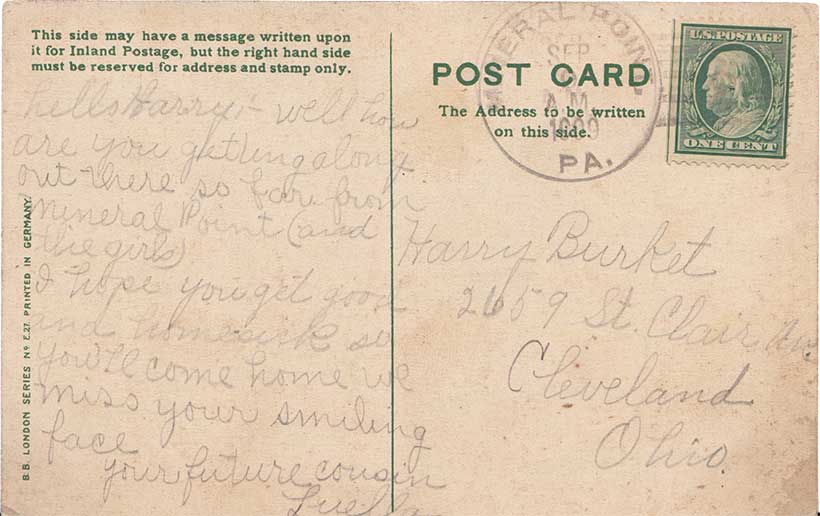 This side may have a message written upon
it for Inland Postage, but the right hand side
must be reserved for address and stamp only.
hello Harry:- well how
are you getting along
out there so far from
Mineral Point (and
the girls)
I hope you get good
and homesick so
you'll come home we
miss your smiling
face
your future cousin
Luella
B.B. LONDON SERIES No E.27. PRINTED IN GERMANY.
POST CARD
The Address to be written
on this side.
MINERAL POINT
SEP
A.M.
1909
PA.
U.S. POSTAGE
ONE CENT
Harry Burket
2659 St. Clair Av.
Cleveland
Ohio.